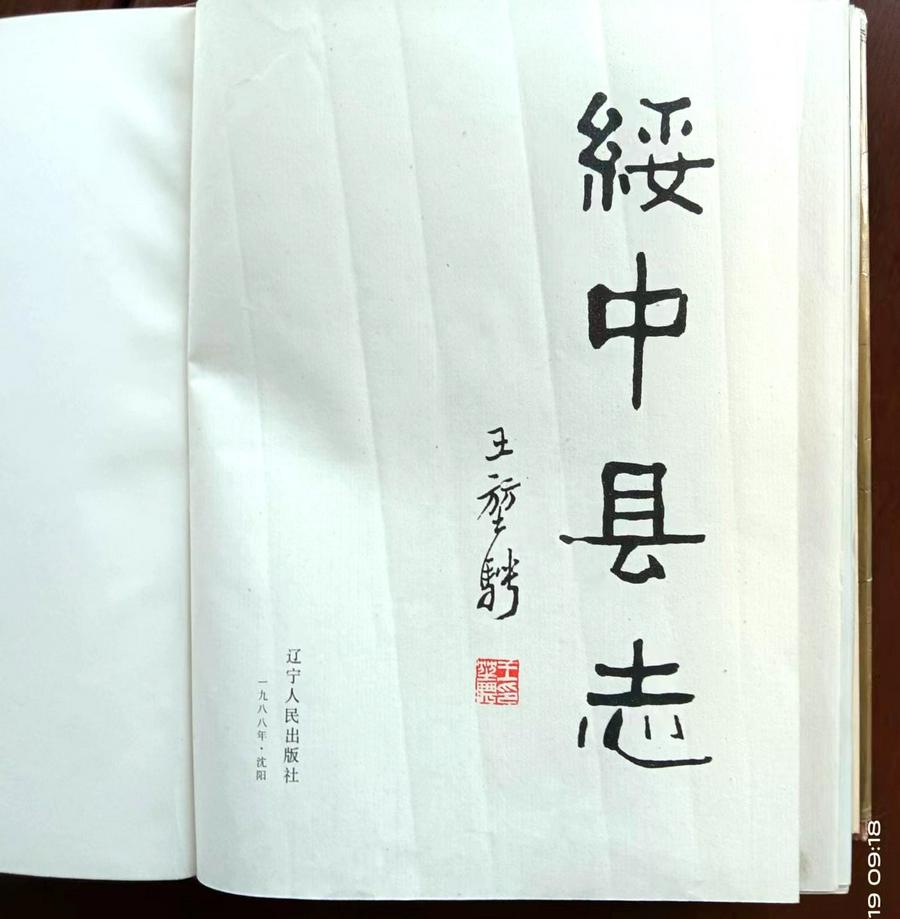 綏中县志
王堃騁
辽宁人民出版社
一九八八年·沈阳
19 09:18